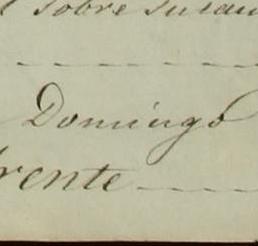 sobre
Domingo
rente